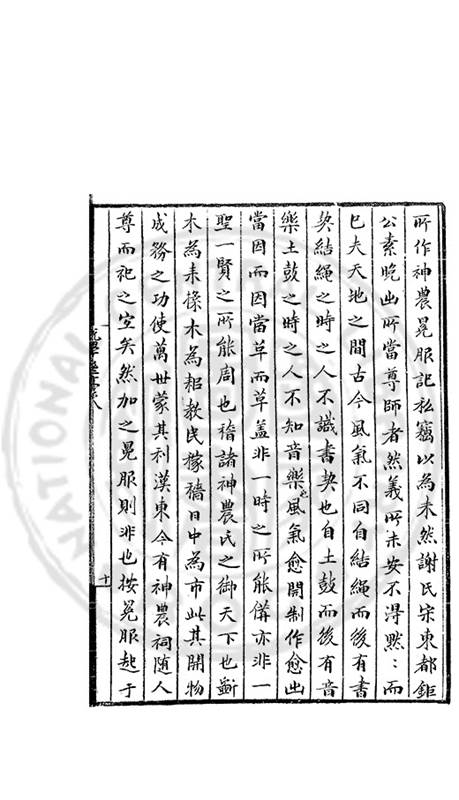 所作神農冕服記私竊以為未然謝氏宋東都鉅
公素晚出所當尊師者然義所未安不得默:而
已夫天地之間古今風氣不同自結繩而後有書
契結繩之時之人不識書契也自土鼓而後有音
樂土鼓之時之人不知音樂也風氣愈開制作愈出
當因而因當革而革蓋非一時之所能備亦非一
聖一賢之所能周也稽諸神農氏之御天下也斲
木為耒揉木為耜教民稼穡日中為市此其開物
成務之功使萬世蒙其利漢東今有神農祠隨人
尊而祀之宜矣然加之冕服則非也按冕服起于
十
NATIONAL